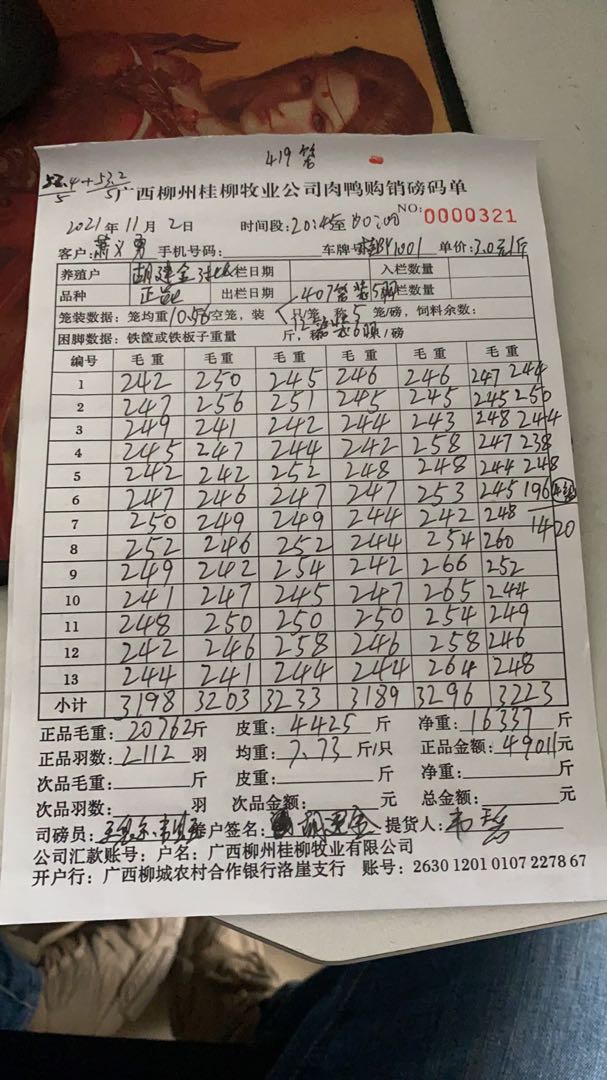 419笼
53.4+53.2
5 5
西柳州桂柳牧业公司肉鸭购销磅码单
2021年11月2日 时间段:20:45至00:00 NO:0000321
客户: 手机号码: 车牌 1001 单价:3.0元/斤
养殖户 栏日期 入栏数量
品种 正品 出栏日期 407笼装5 栏数量
笼装数据:笼均重10.56/空笼,装 只/笼,称5笼/磅,饲料余数:
困脚数据:铁筐或铁板子重量 斤, /磅
编号 毛重 毛重 毛重 毛重 毛重 毛重
1 242 250 245 246 246 247 244
2 247 256 251 245 245 245 250
3 249 241 242 244 243 248 244
4 245 247 244 242 258 247 238
5 242 242 252 248 248 244 248
6 247 246 247 247 253 245 196
7 250 249 249 244 242 248 1420
8 252 246 252 244 254 260
9 249 242 254 242 266 252
10 241 247 245 247 265 244
11 248 250 250 250 254 249
12 242 246 258 246 258 246
13 244 241 244 244 264 248
小计 3198 3203 3233 3189 3296 3223
正品毛重:20762斤 皮重:4425斤 净重:16337斤
正品羽数:2112羽 均重:7.73斤/只 正品金额:49011元
次品毛重: 斤 皮重: 斤 净重: 斤
次品羽数: 羽 次品金额: 元 总金额: 元
司磅员: 户签名: 提货人:
公司汇款账号:户名:广西柳州桂柳牧业有限公司
开户行:广西柳城农村合作银行洛崖支行 账号:2630 1201 0107 2278 67